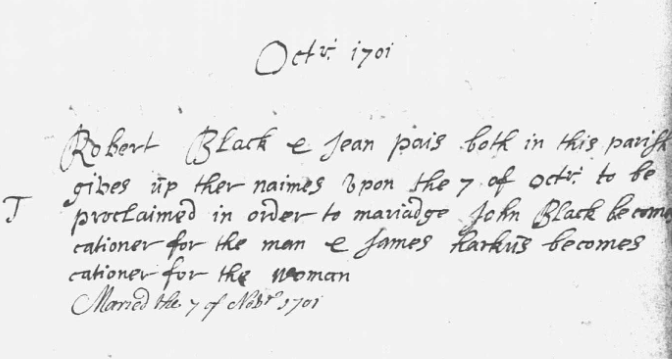 Octr: 1701
Robert Black & Jean pais both in this parish
gives up ther naimes Upon the 7 of Octr: to be
T proclaimed in order to mariadge John Black becom
cationer for the man & James harkus becomes
cationer for the woman
Maried the 7 of Nobr 1701